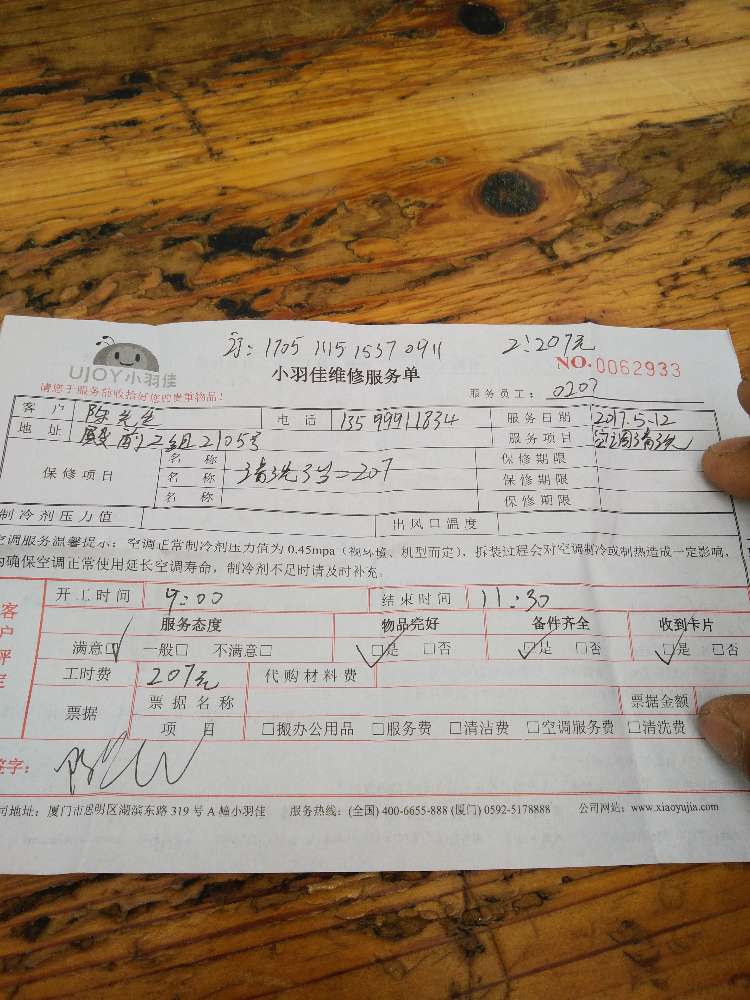 1705 1115 1537 0911 207元
UJOY小羽佳
小羽佳维修服务单
NO.0062933
请您于服务前收拾好您的贵重物品!
服务员工: 0207
客户 陈先生 电话 13599911834 服务日期 2017.5.12
地址 殿前2组2105号 服务项目 空调清洗
保修项目 名称 清洗3台=207 保修期限
名称 保修期限
名称 保修期限
制冷剂压力值 出风口温度
空调服务温馨提示: 空调正常制冷剂压力值为 0.45mpa (视环境、机型而定), 拆装过程会对空调制冷或制热造成一定影响,
为确保空调正常使用延长空调寿命, 制冷剂不足时请及时补充。
客户评定
开工时间 9:00 结束时间 11:30
服务态度 物品完好 备件齐全 收到卡片
满意☑ 一般□ 不满意□ ☑是 □否 ☑是 □否 ☑是 □否
工时费 207元 代购材料费
票据 票据名称 票据金额
项目 □搬办公用品 □服务费 □清洁费 □空调服务费 □清洗费
签字:
司地址: 厦门市思明区湖滨东路 319 号 A 幢小羽佳 服务热线: (全国) 400-6655-888 (厦门) 0592-5178888 公司网站: www.xiaoyujia.com